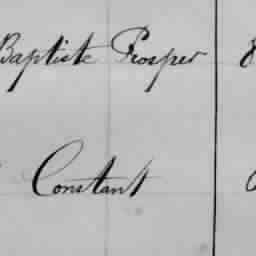 Baptiste Prosper
Constant